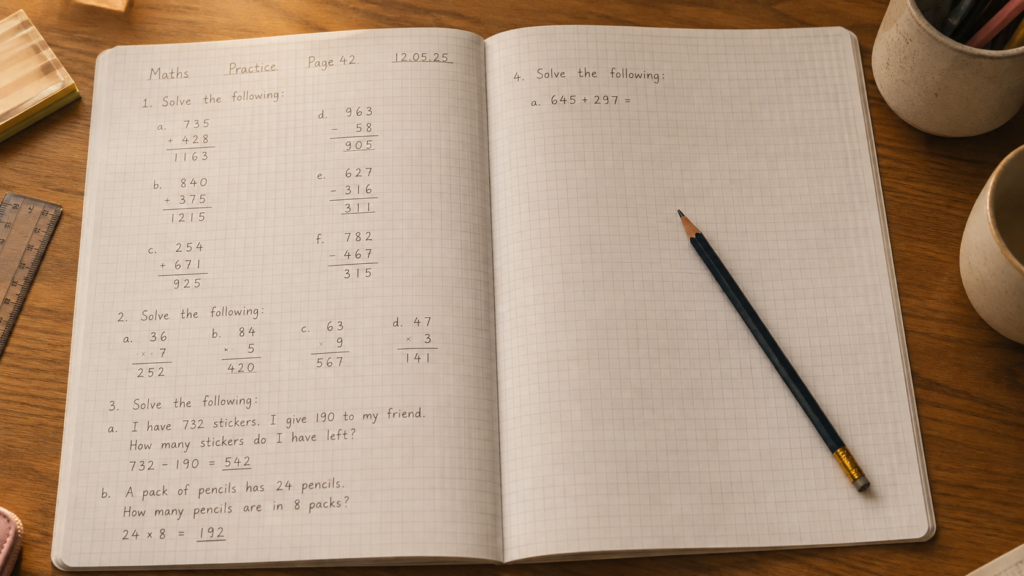 Maths Practice Page 42 12.05.25
1. Solve the following:
a. 735
+ 428
1163
b. 840
+ 375
1215
c. 254
+ 671
925
d. 963
- 58
905
e. 627
- 316
311
f. 782
- 467
315
2. Solve the following:
a. 36
× 7
252
b. 84
× 5
420
c. 63
× 9
567
d. 47
× 3
141
3. Solve the following:
a. I have 732 stickers. I give 190 to my friend.
How many stickers do I have left?
732 - 190 = 542
b. A pack of pencils has 24 pencils.
How many pencils are in 8 packs?
24 × 8 = 192
4. Solve the following:
a. 645 + 297 =